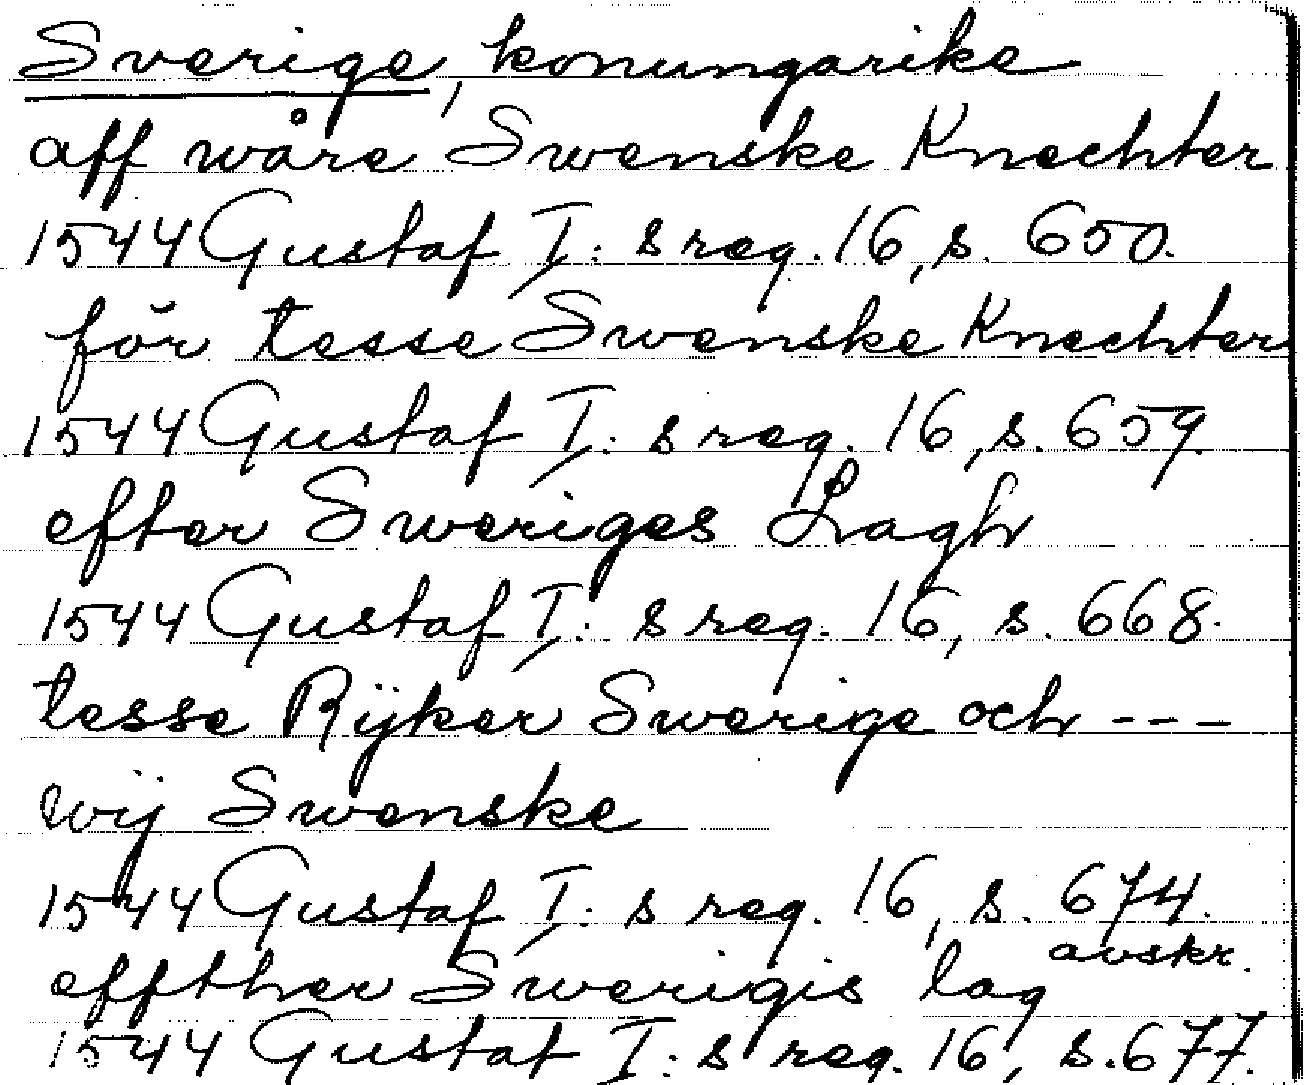 Sverige, konungarike
aff wåre Swenske Knechter
1544 Gustaf I: s reg. 16, s. 650.
för tesse Swenske Knechter
1544 Gustaf I: s reg. 16, s. 659.
efter Sweriges Lagh
1544 Gustaf I: s reg. 16, s. 668.
tesse Rÿker Swerige och ---
wij Swenske
1544 Gustaf I: s reg. 16, s. 674.
avskr.
effther Swerigis lag
1544 Gustaf I: s reg. 16, s. 677.